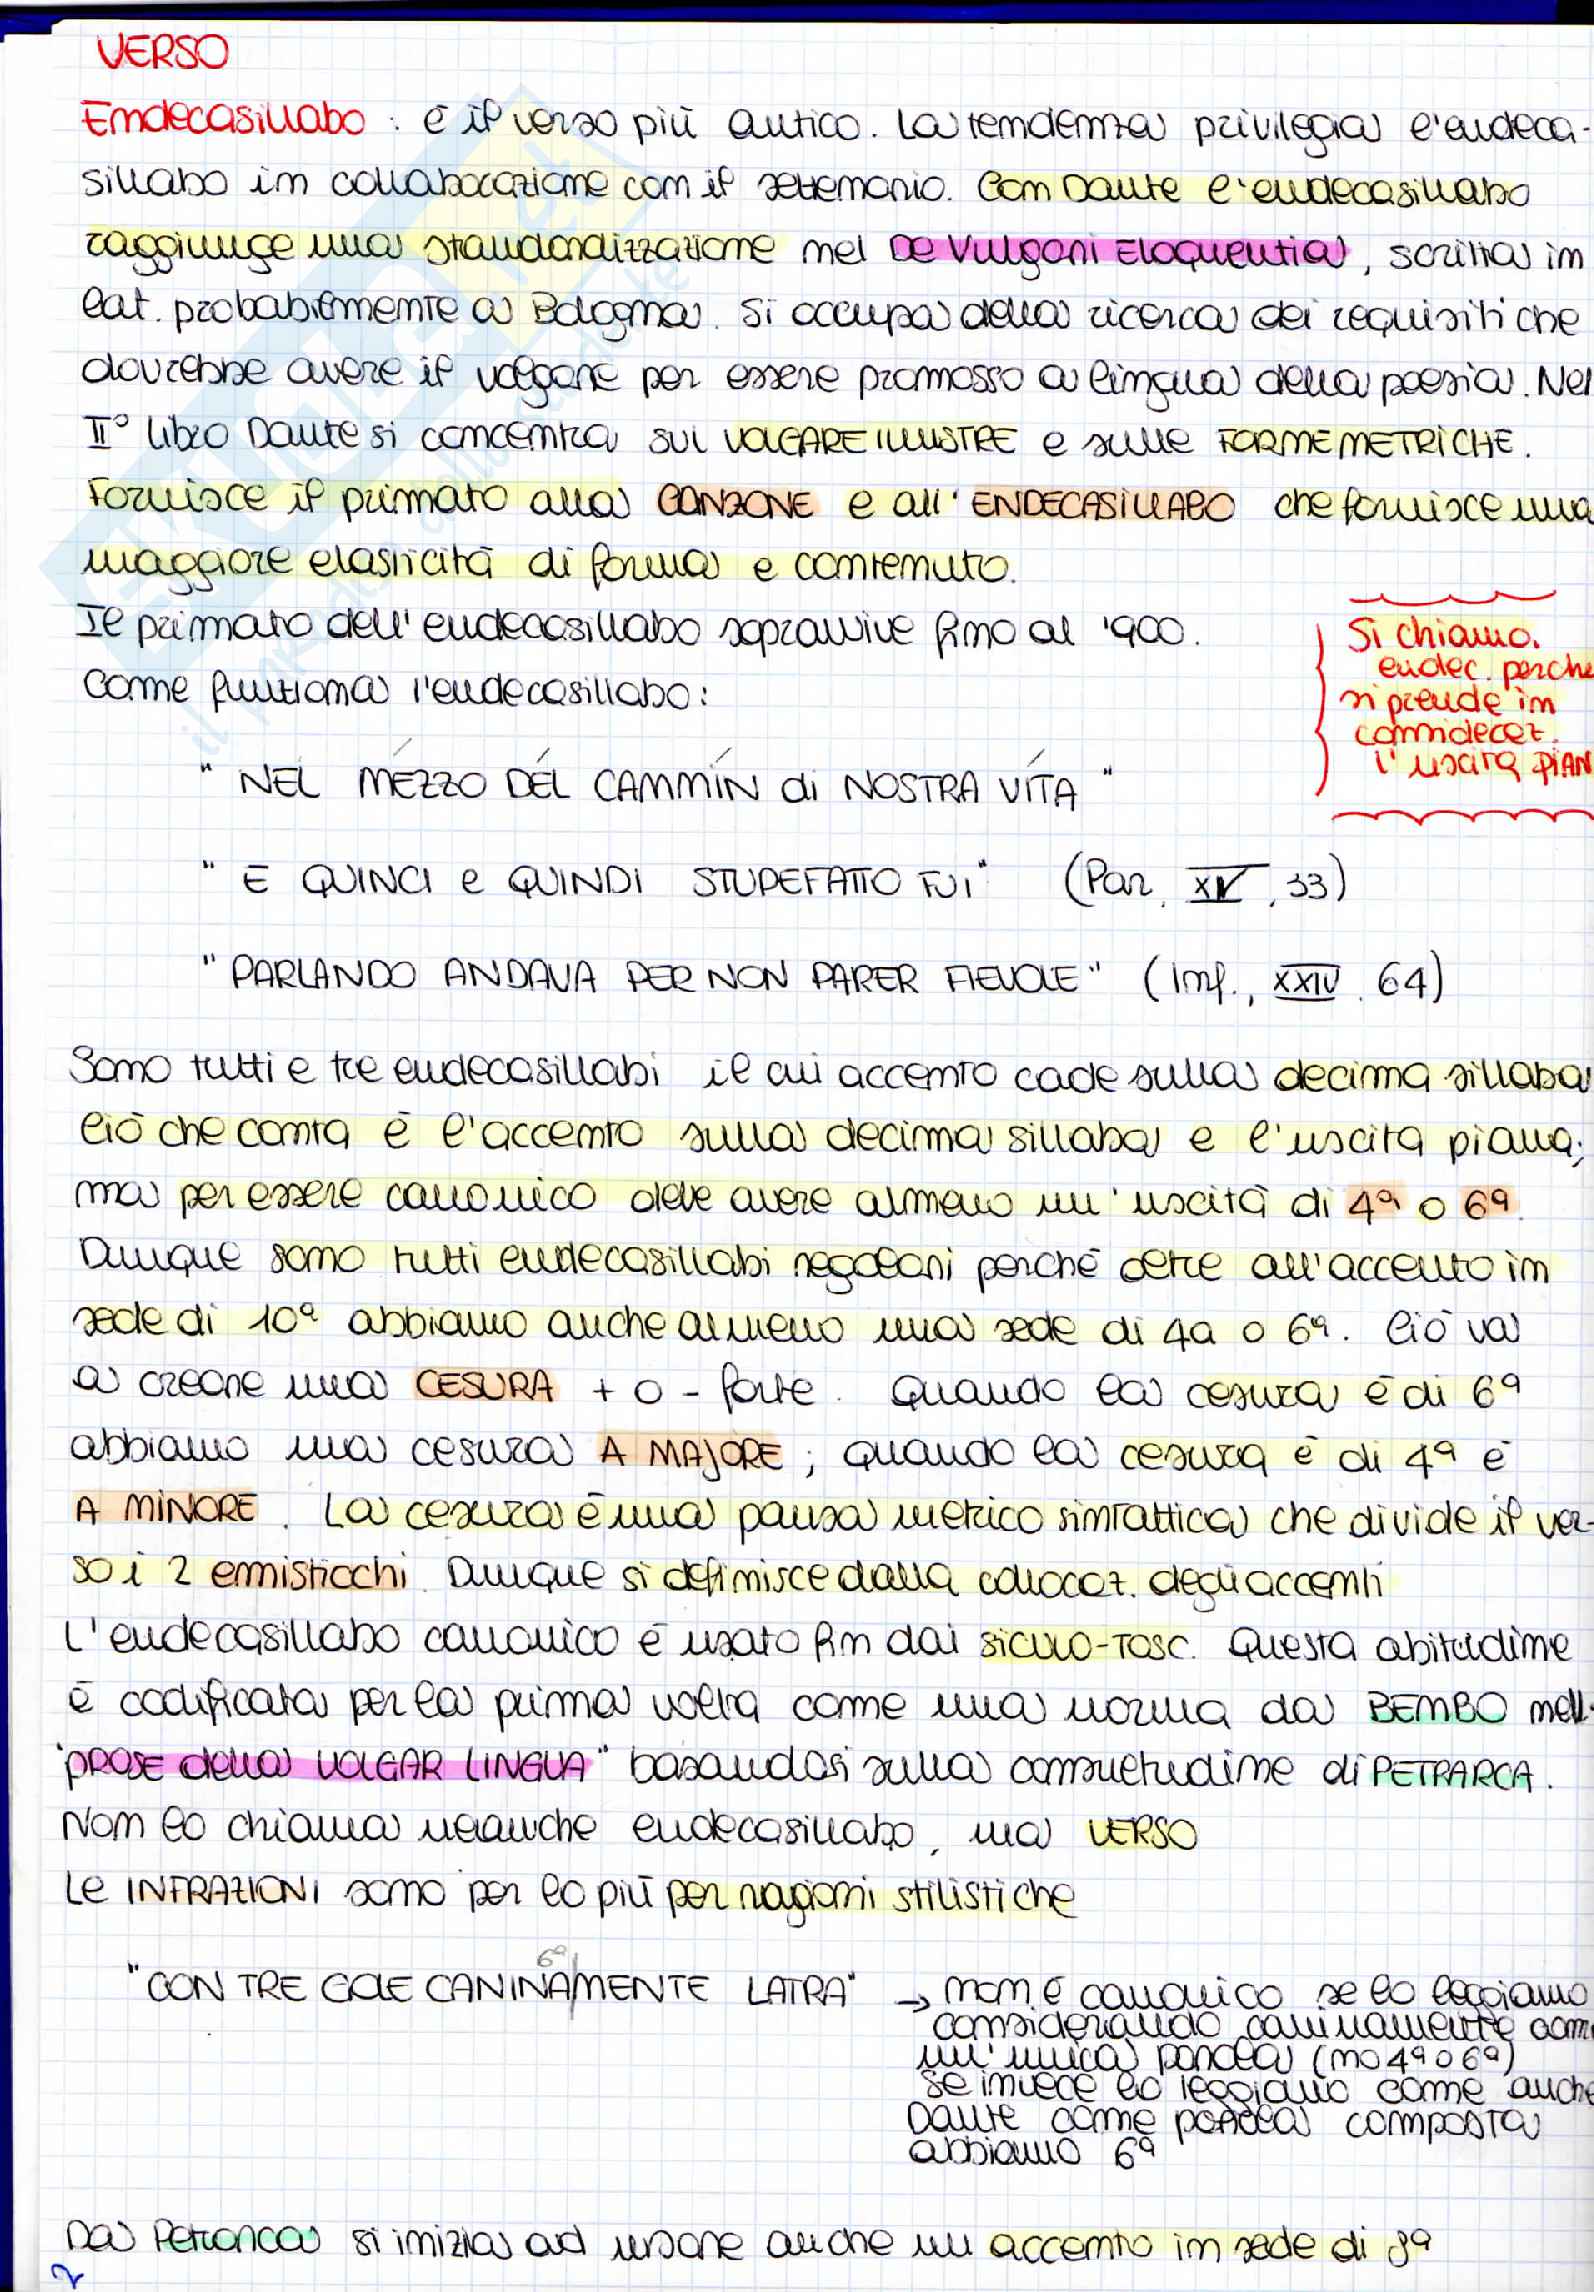 VERSO
Endecasillabo : è il verso più antico. La tendenza privilegia l'endeca-
sillabo in collaborazione con il settenario. Con Dante l'endecasillabo
raggiunge una standardizzazione nel De Vulgari Eloquentia, scritta in
lat. probabilmente a Bologna. Si occupa della ricerca dei requisiti che
dovrebbe avere il volgare per essere promosso a lingua della poesia. Nel
II° libro Dante si concentra sul VOLGARE ILLUSTRE e sulle FORME METRICHE.
Fornisce il primato alla CANZONE e all' ENDECASILLABO che fornisce una
maggiore elasticità di forma e contenuto.
Il primato dell'endecasillabo sopravvive fino al '900.
Come funziona l'endecasillabo:
Si chiamo.
endec. perche
si prende in
considerez.
l'uscita PIAN
"NEL MÉZZO DÉL CAMMÍN di NOSTRA VÍTA"
"E QUINCI e QUINDI STUPEFATTO FUI" (Par. XIV, 33)
"PARLANDO ANDAVA PER NON PARER FIEVOLE" (Inf., XXIV. 64)
Sono tutti e tre endecasillabi il cui accento cade sulla decima sillaba
Ciò che conta è l'accento sulla decima sillaba e l'uscita piana;
ma per essere canonico deve avere almeno un'uscità di 4ª o 6ª.
Dunque sono tutti endecasillabi regolari perché oltre all'accento in
sede di 10ª abbiamo anche almeno una sede di 4a o 6ª. Ciò va
a creare una CESURA + o - forte. Quando la cesura è di 6ª
abbiamo una cesura A MAJORE; quando la cesura è di 4ª è
A MINORE. La cesura è una pausa metrico sintattica che divide il ver-
so i 2 emisticchi. Dunque si definisce dalla collocaz. degli accenti
L'endecasillabo canonico è usato fin dai siculo-tosc. Questa abitudine
è codificata per la prima volta come una norma da BEMBO nell
"PROSE della VOLGAR LINGUA" basandosi sulla consuetudine di PETRARCA.
Non lo chiama neanche endecasillabo, ma VERSO
Le INFRAZIONI sono per lo più per ragioni stilistiche
6ª
"CON TRE GOLE CANINA/MENTE LATRA" → non è canonico se lo leggiamo
considerando caninamente com
un'unica parola (no 4ª o 6ª)
se invece lo leggiamo come anche
Dante come parola composta
abbiamo 6ª
Da Petrarca si inizia ad usare anche un accento in sede di 8ª
2